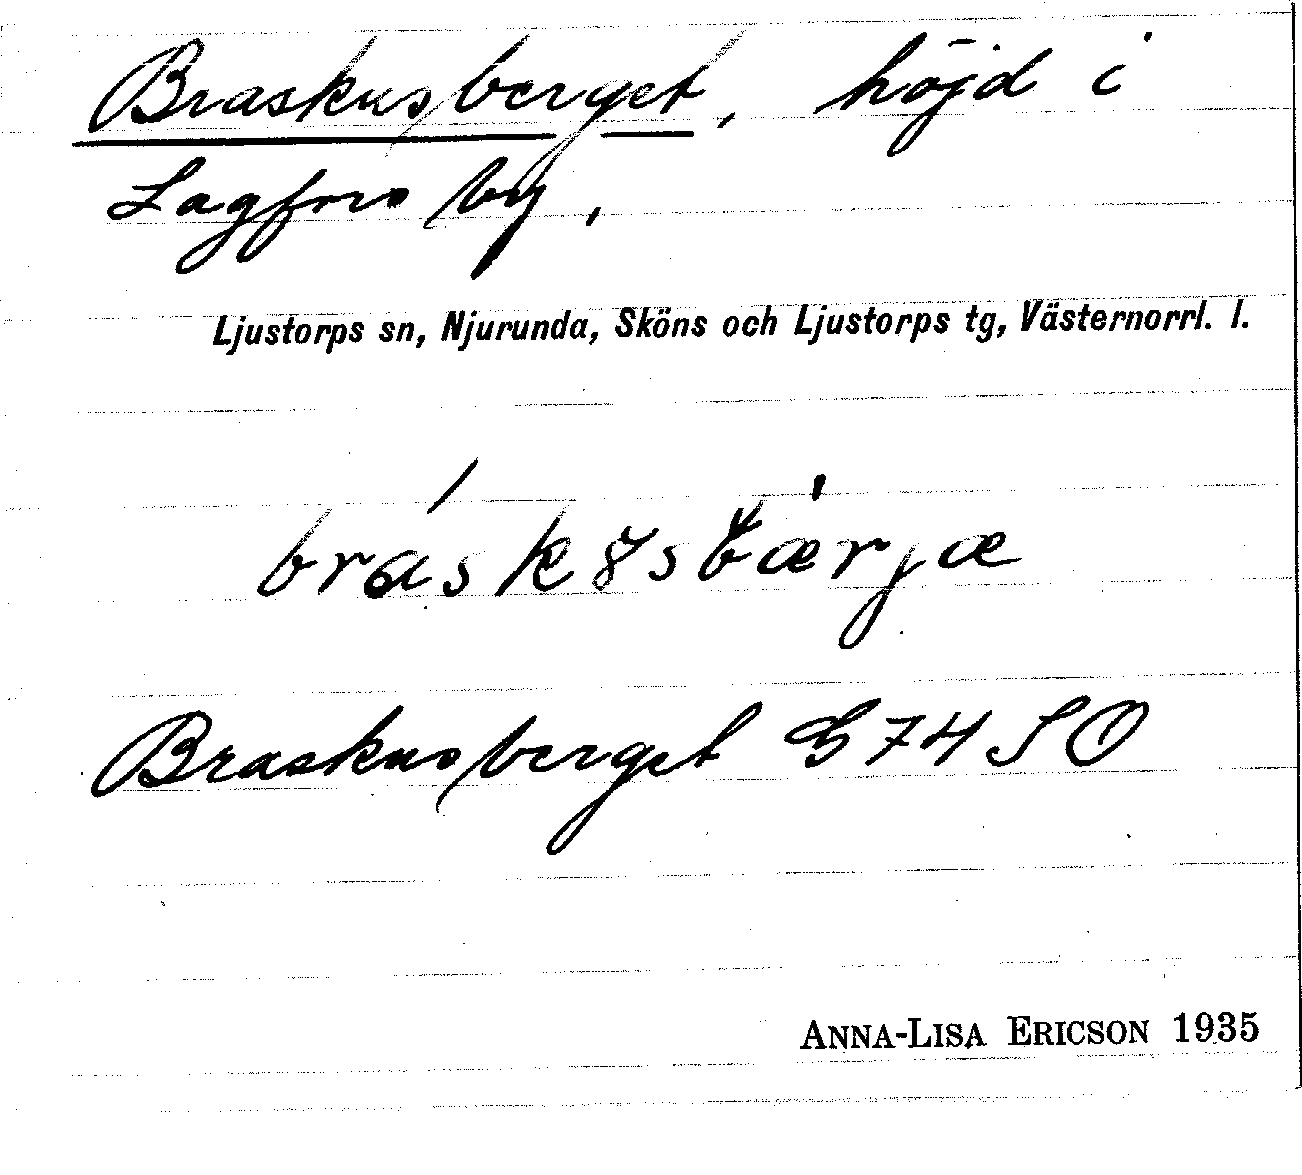 Braskusberget, höjd i
Lagfors by,
Ljustorps sn, Njurunda, Sköns och Ljustorps tg, Västernorrl. l.
Braskusberget G 74 SO
ANNA-LISA ERICSON 1935